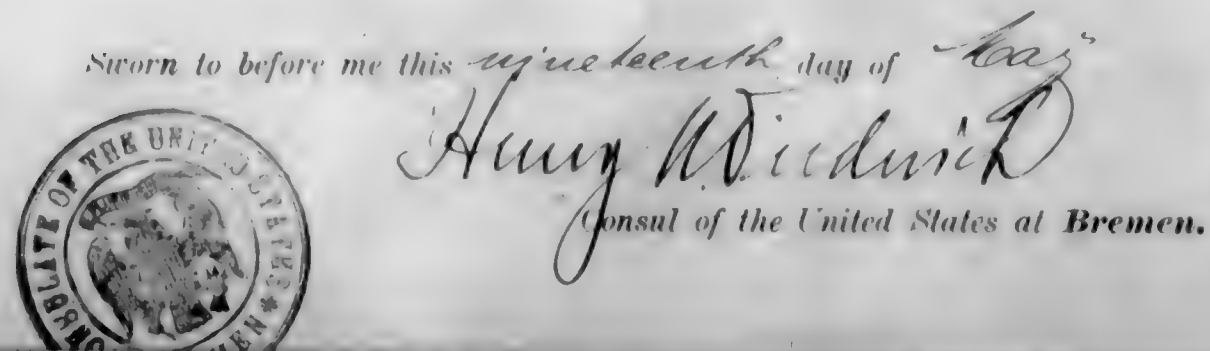 Sworn to before me this nineteenth day of May
Henry W. Diederich
Consul of the United States at Bremen.
CONSULATE OF THE UNITED STATES * BREMEN